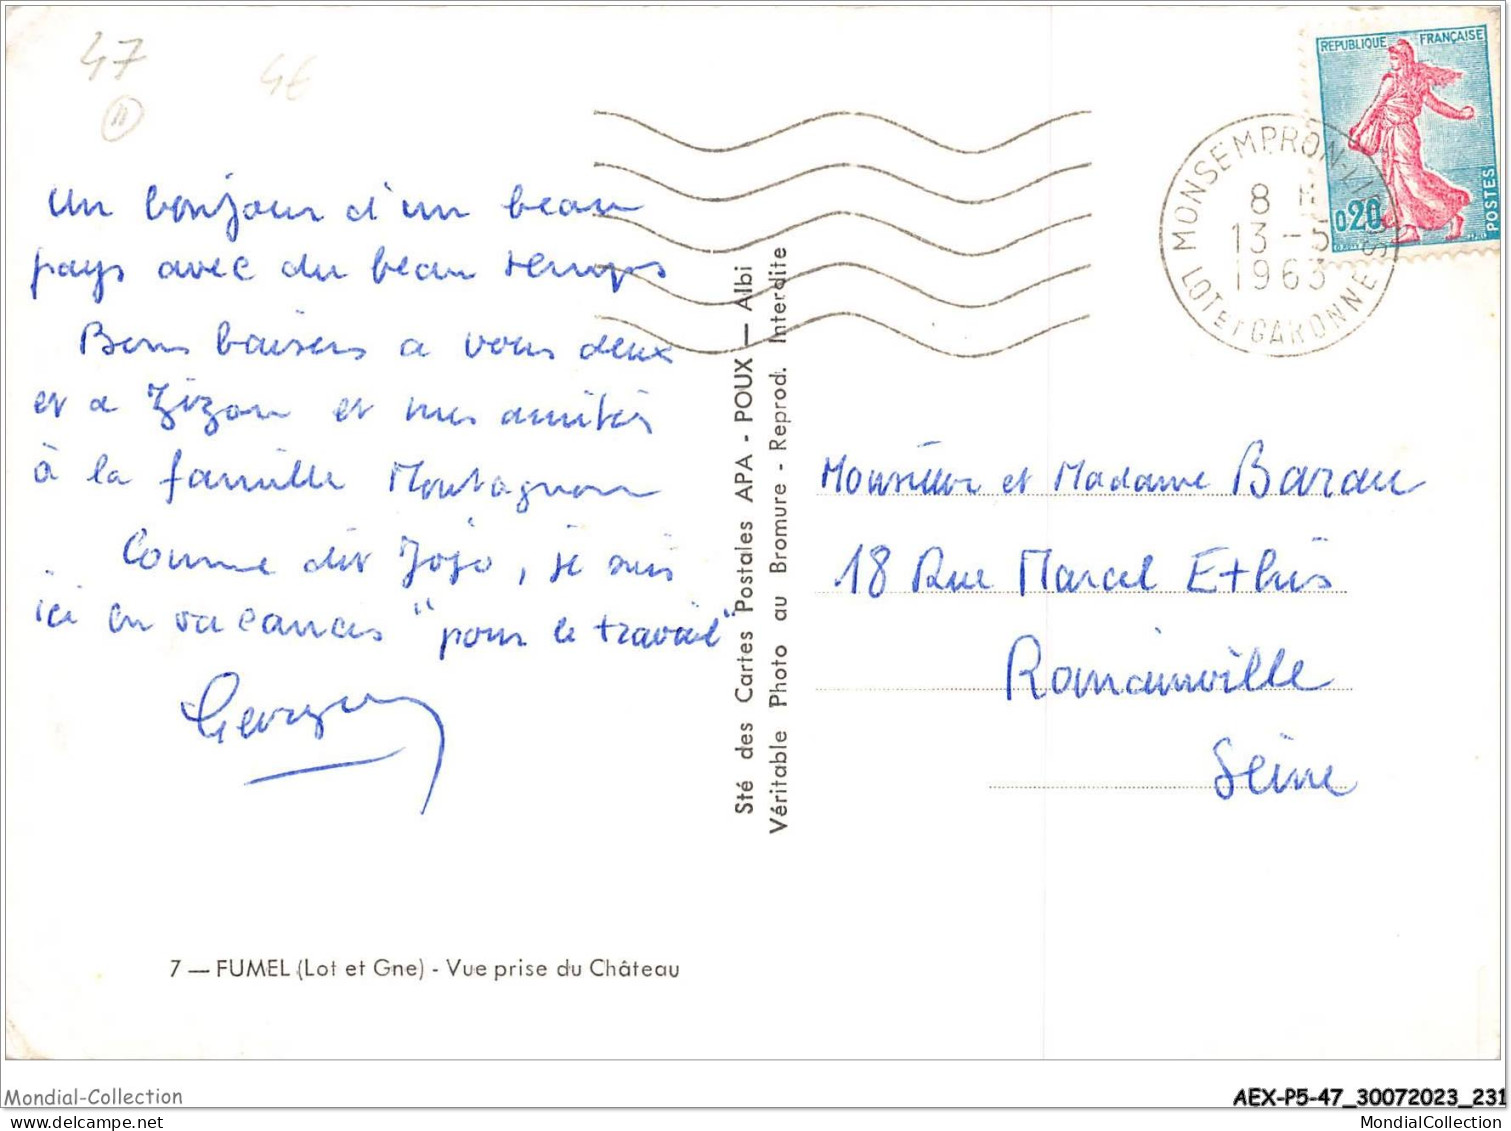 47
4€
11
Un bonjour d'un beau
pays avec du beau temps
Bons baisers a vous deux
et a Zizou et mes amitiés
à la famille Montagnon
Comme dit Jojo, je suis
ici en vacances "pour le travail"
Sté des Cartes Postales APA - POUX — Albi
Véritable Photo au Bromure - Reprod. Interdite
REPUBLIQUE FRANÇAISE
0,20
POSTES
MONSEMPRON-LIBOS
8 H
13 - 5
1963
LOT et GARONNE
Monsieur et Madame Barau
18 Rue Marcel Ethis
Romainville
Seine
7 — FUMEL (Lot et Gne) - Vue prise du Château
Mondial-Collection
AEX-P5-47_30072023_231
MondialCollection